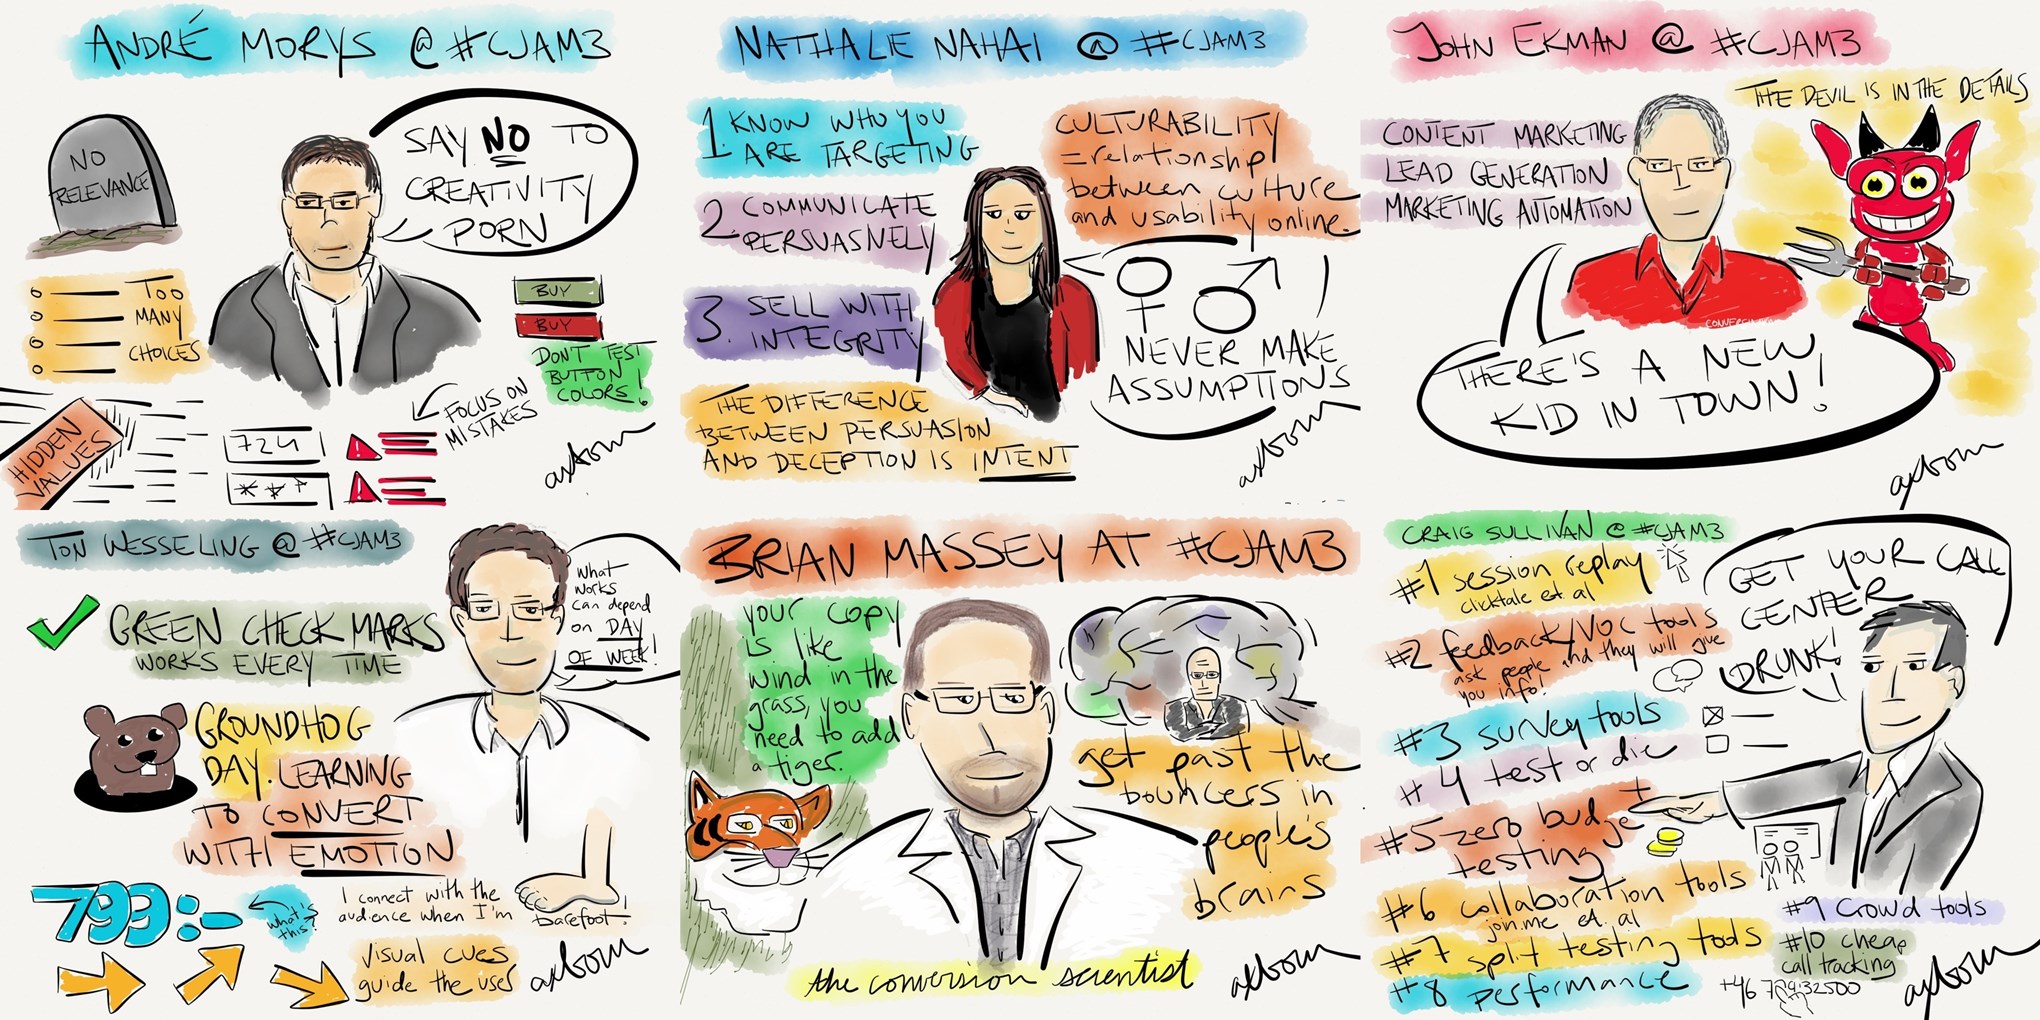 ANDRÉ MORYS @ #CJAM3
NO
RELEVANCE
SAY NO TO
CREATIVITY
PORN
TOO
MANY
CHOICES
BUY
BUY
DON'T TEST
BUTTON
COLORS!
HIDDEN
VALUES
724
***
FOCUS ON
MISTAKES
axbom
NATHALIE NAHAI @ #CJAM3
1. KNOW WHO YOU
ARE TARGETING
2. COMMUNICATE
PERSUASIVELY
3. SELL WITH
INTEGRITY
THE DIFFERENCE
BETWEEN PERSUASION
AND DECEPTION IS INTENT
CULTURABILITY
= relationship
between culture
and usability online.
NEVER MAKE
ASSUMPTIONS
axbom
JOHN EKMAN @ #CJAM3
THE DEVIL IS IN THE DETAILS
CONTENT MARKETING
LEAD GENERATION
MARKETING AUTOMATION
THERE'S A NEW
KID IN TOWN!
axbom
TON WESSELING @ #CJAM3
GREEN CHECK MARKS
WORKS EVERY TIME
what
works
can depend
on DAY
OF WEEK!
GROUNDHOG
DAY. LEARNING
TO CONVERT
WITH EMOTION
799:-
what's
this?
I connect with the
audience when I'm
barefoot!
visual cues
guide the user
axbom
BRIAN MASSEY AT #CJAM3
your copy
is like
wind in the
grass, you
need to add
a tiger.
get past the
bouncers in
people's
brains
the conversion scientist
axbom
CRAIG SULLIVAN @ #CJAM3
#1 session replay
clicktale et al
#2 feedback/VOC tools
ask people and they will give
you info!
#3 survey tools
#4 test or die
#5 zero budget
testing
#6 collaboration tools
join.me et. al
#7 split testing tools
#8 performance
GET YOUR CALL
CENTER
DRUNK!
#9 crowd tools
#10 cheap
call tracking
axbom